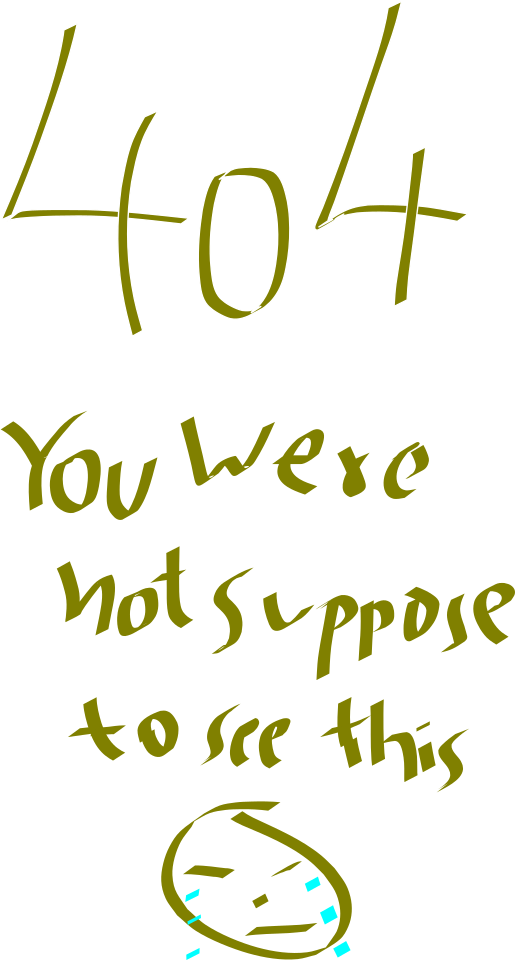 404
You were
not suppose
to see this